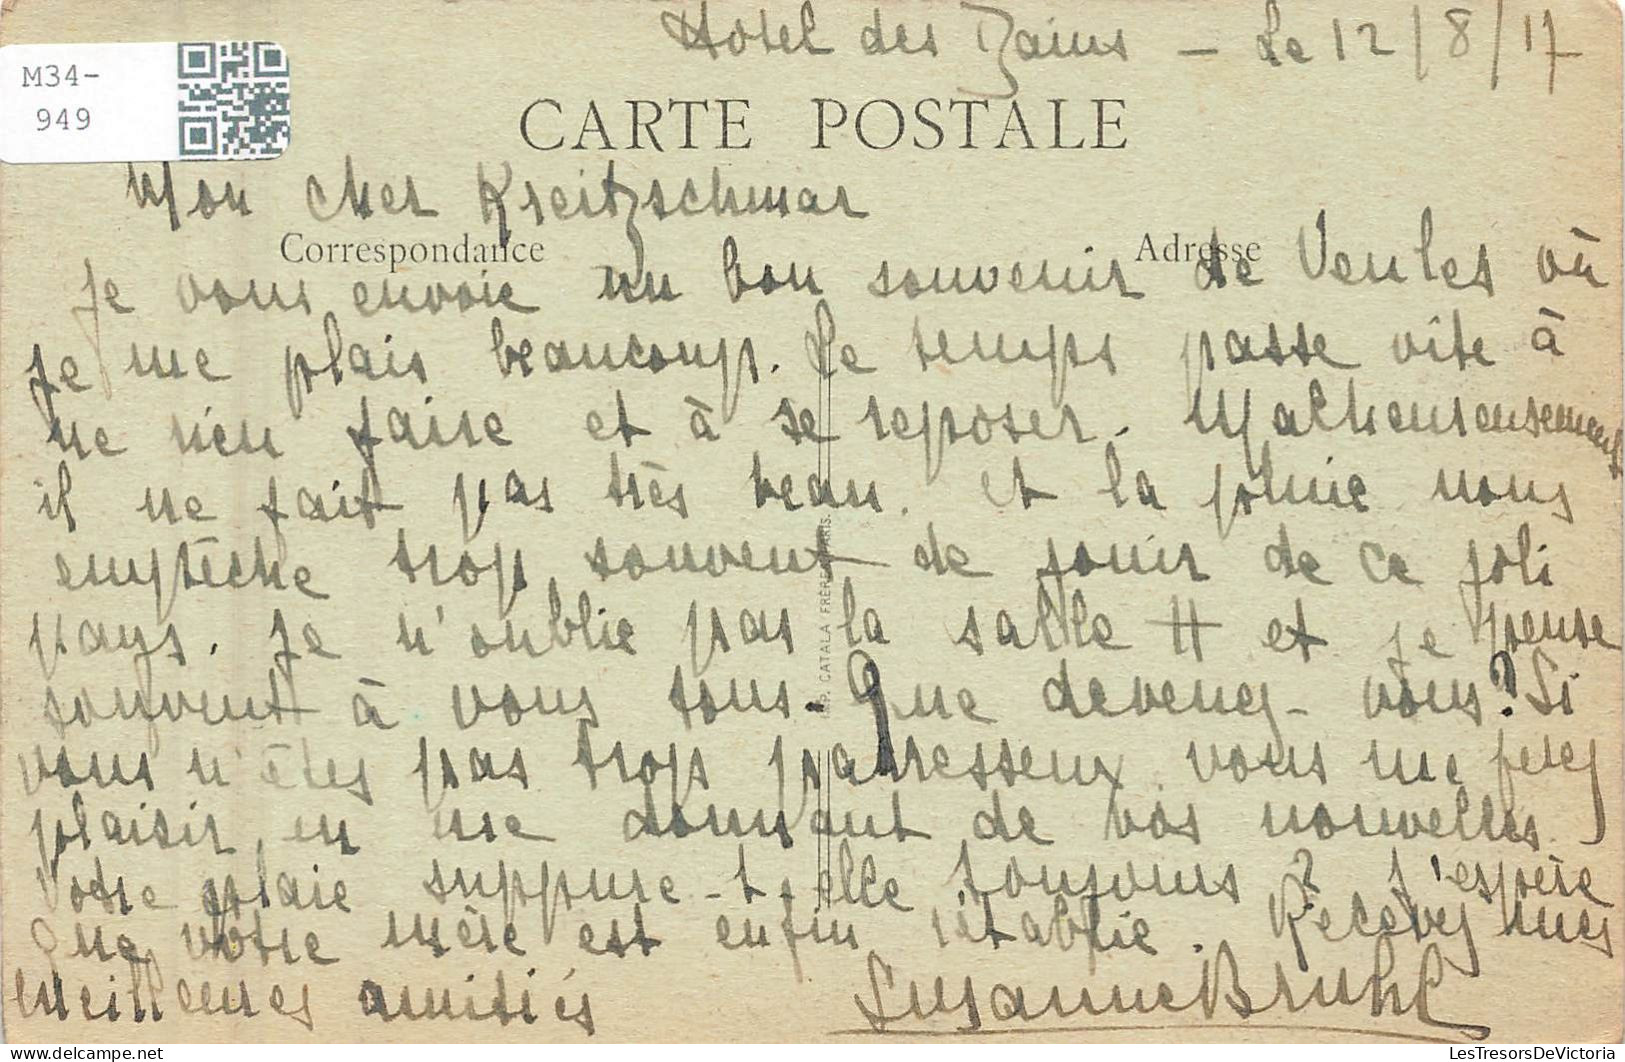 Hotel des Bains - Le 12/8/17
M34-
949
CARTE POSTALE
Mon cher Kreitzschmar
Correspondance
Adresse
Je vous envoie un bon souvenir de Veules où
je me plais beaucoup. Le temps passe vite à
ne rien faire et à se reposer. Malheureusement
il ne fait pas très beau. et la pluie nous
empêche trop souvent de jouir de ce joli
pays. Je n'oublie pas la salle H et je pense
souvent à vous tous. Que devenez-vous? Si
vous n'êtes pas trop paresseux vous me ferez
plaisir en me donnant de vos nouvelles.
Votre plaie suppure-t-elle toujours? J'espère
que votre mère est enfin rétablie. Recevez mes
meilleures amitiés
Susanne Bruhl
IMP. CATALA FRÈRES PARIS.
LesTresorsDeVictoria